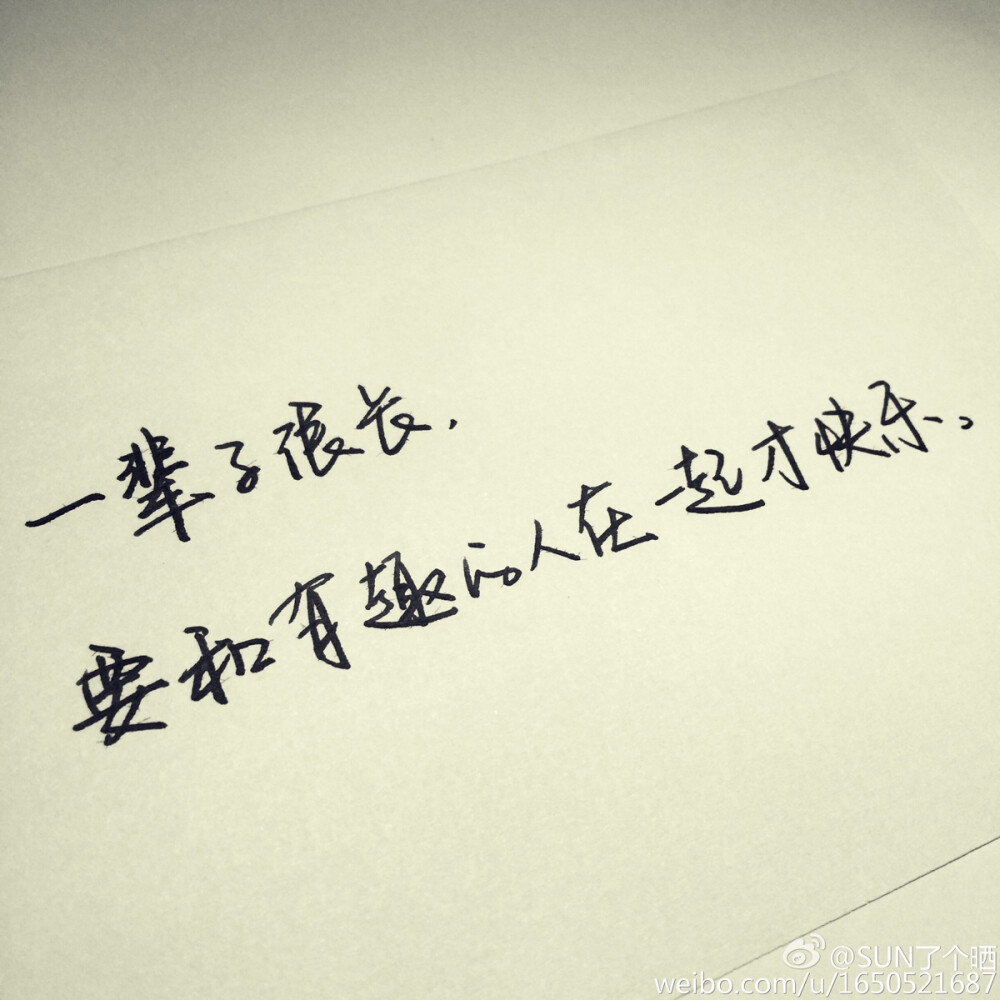 一辈子很长.
要和有趣的人在一起才快乐。
@SUN了个晒
weibo.com/u/1650521687